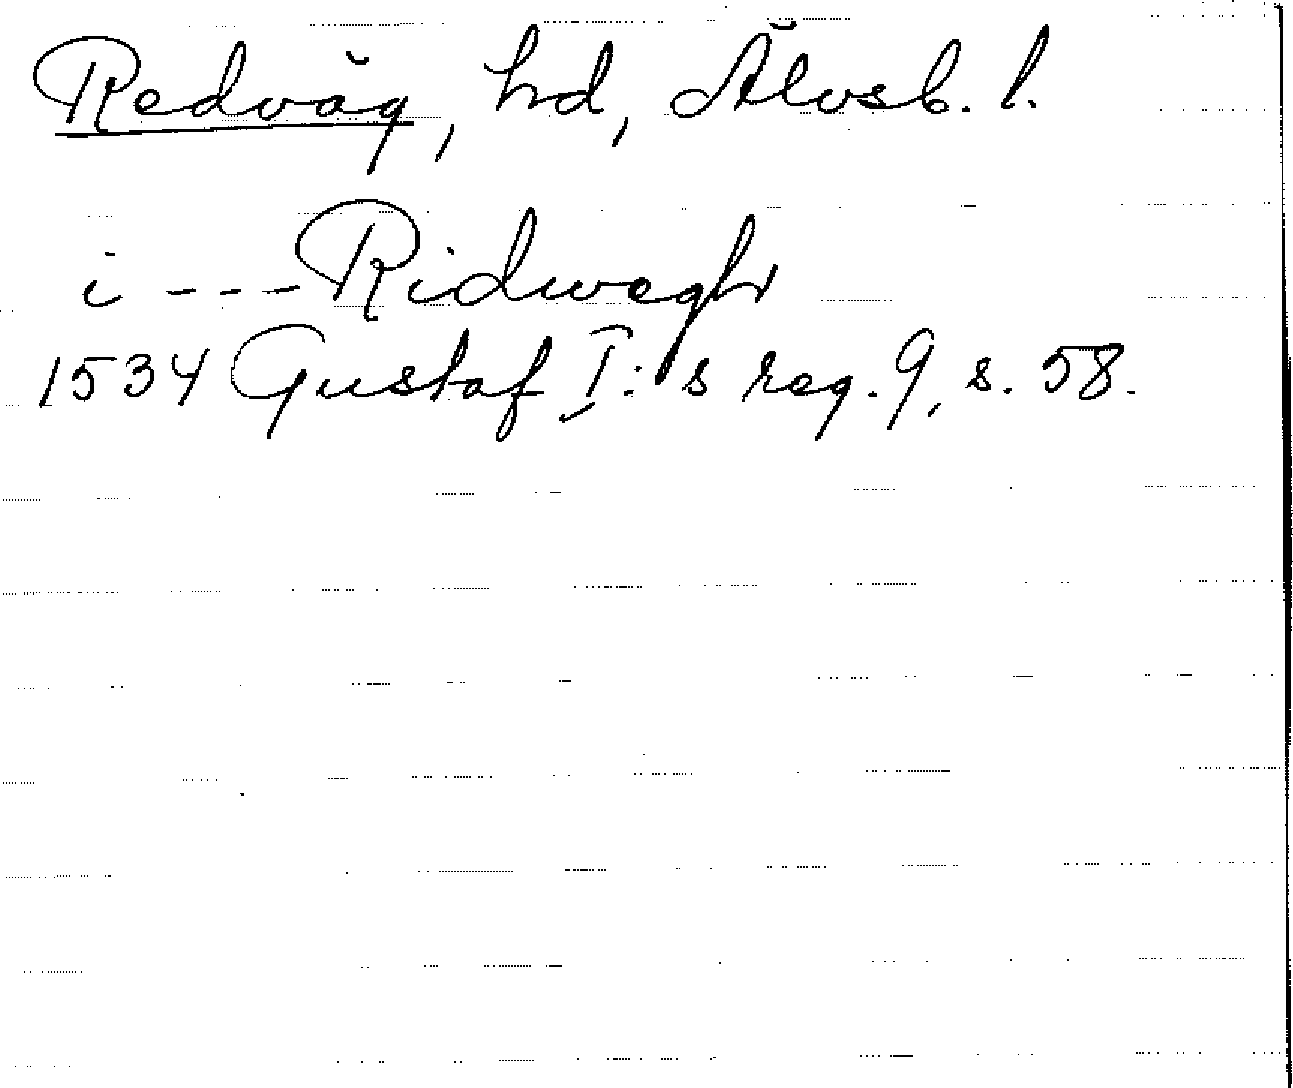 Redväg, hd, Älvsb. l.
i --- Ridwegh
1534 Gustaf I:s reg. 9, s. 58.